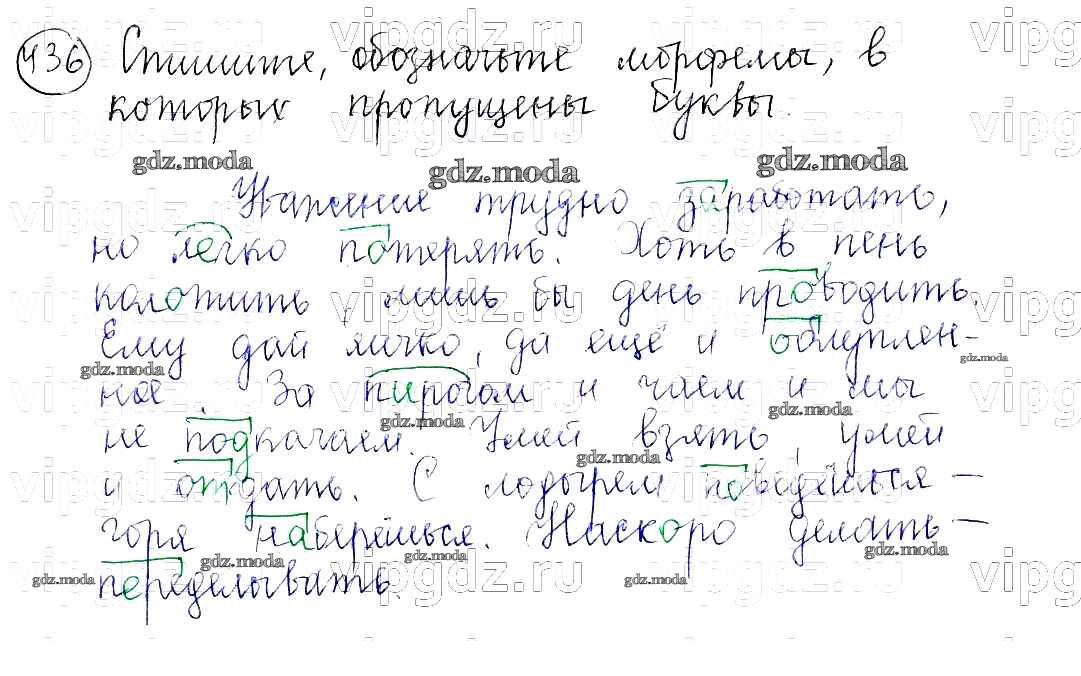 436 Спишите, обозначьте морфемы, в
которых пропущены буквы.
Уважение трудно заработать,
но легко потерять. Хоть в пень
колотить, лишь бы день проводить.
Ему дай яичко, да ещё и облуплен-
ное. За пирогом и чаем и мы
не подкачаем. Умей взять, умей
и отдать. С лодырем поведёшься –
горя наберёшься. Наскоро делать –
переделывать.